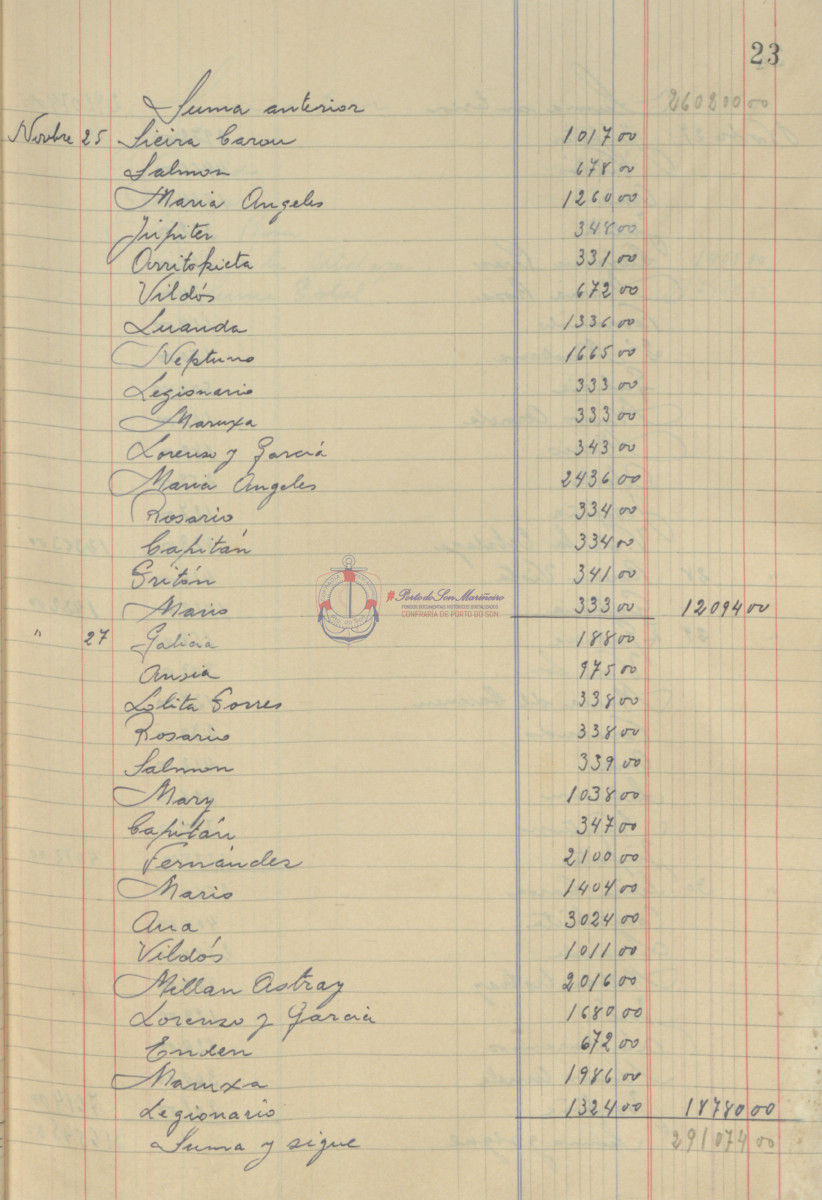 23
Suma anterior 260200 00
Novbre 25 Sieira Carou 1017 00
Salmon 678 00
Maria Angeles 1260 00
Júpiter 348 00
Arritokieta 331 00
Vildós 672 00
Luanda 1336 00
Neptuno 1665 00
Legionario 333 00
Maruxa 333 00
Lorenzo y García 343 00
Maria Angeles 2436 00
Rosario 334 00
Capitán 334 00
Tritón 341 00
Mario 333 00 12094 00
" 27 Galicia 188 00
Ansia 975 00
Lolita Torres 338 00
Rosario 338 00
Salmon 339 00
Mary 1038 00
Capitán 347 00
Fernández 2100 00
Mario 1404 00
Ana 3024 00
Vildós 1011 00
Millan Astray 2016 00
Lorenzo y Garcia 1680 00
Enden 672 00
Maruxa 1986 00
Legionario 1324 00 18780 00
Suma y sigue 291074 00
Porto do Son Mariñeiro
FONDOS DOCUMENTAIS HISTÓRICOS DIXITALIZADOS
CONFRARÍA DE PORTO DO SON